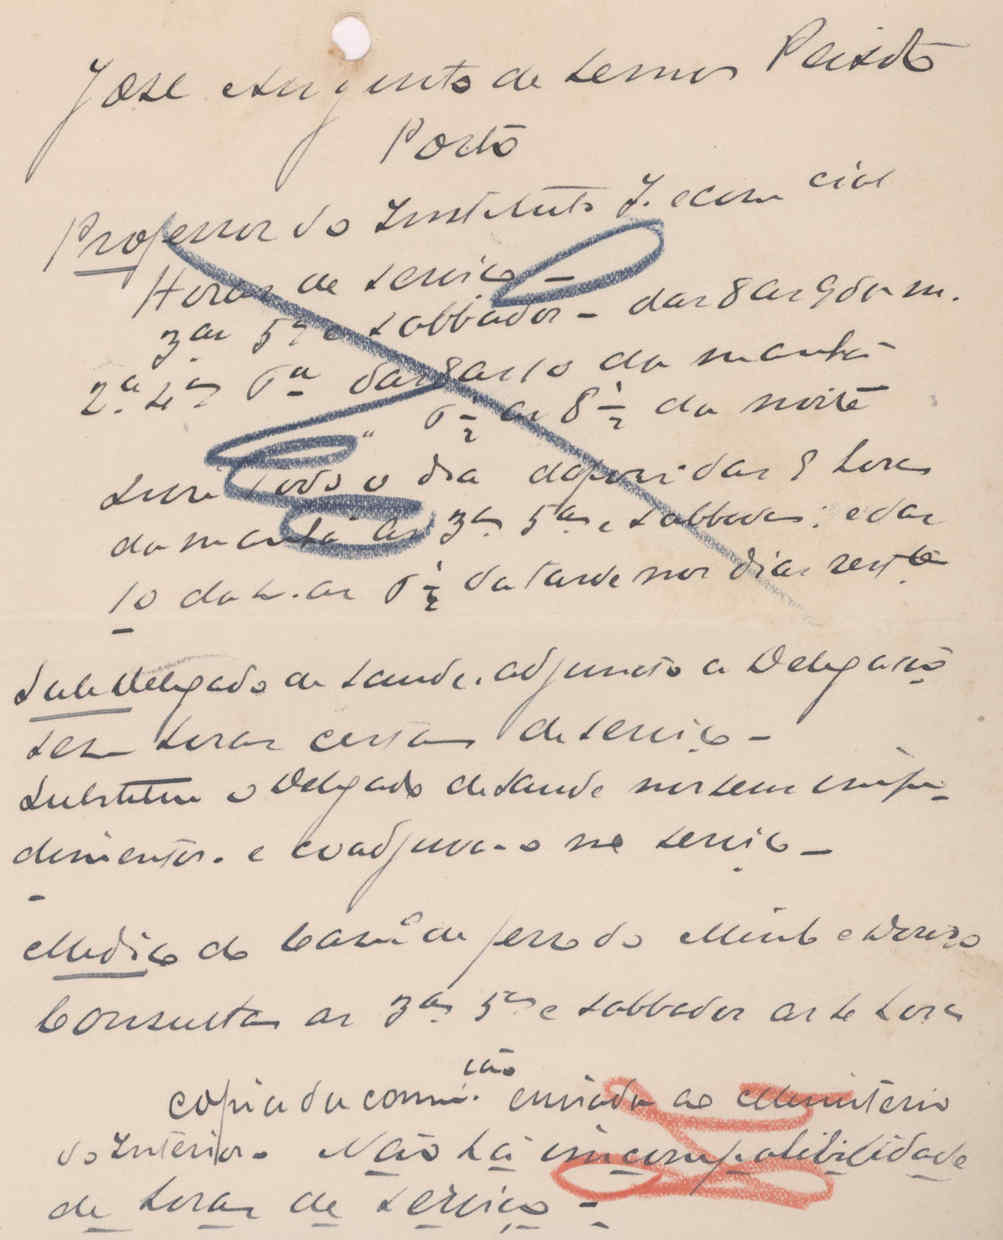 José Sargento de Lemos Peixoto
Porto
Professor do Instituto I. e comcial
Horas de serviço –
3as 5as e sabbados – das 8 as 9 da m.
2as 4as 6as das 8 as 10 da manhã
" 6 1/2 as 8 1/2 da noite
Livre todo o dia depois das 9 horas
da manhã as 3as 5as e sabbados: e das
10 da m. as 6 1/2 da tarde nos dias
Sub Delegado de saude. adjuncto a Delegação
sem horas certas de serviço –
Substitue o Delegado de Saude nos seus impe-
dimentos. e coadjuva-o no serviço –
Medico do Camº de ferro do Minho e Douro
Consultas as 3as 5as e sabbados as horas
copia da commição enviada ao Ministerio
do Interior. Não há incompatibilidade
de horas de serviço –